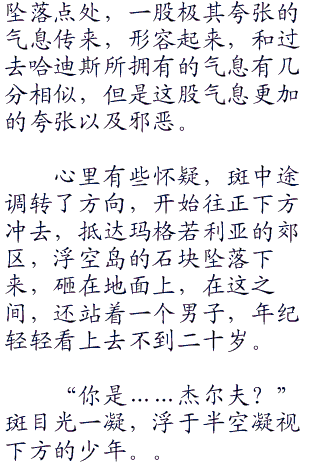 坠落点处，一股极其夸张的
气息传来，形容起来，和过
去哈迪斯所拥有的气息有几
分相似，但是这股气息更加
的夸张以及邪恶。
心里有些怀疑，斑中途
调转了方向，开始往正下方
冲去，抵达玛格若利亚的郊
区，浮空岛的石块坠落下
来，砸在地面上，在这之
间，还站着一个男子，年纪
轻轻看上去不到二十岁。
“你是……杰尔夫？”
斑目光一凝，浮于半空凝视
下方的少年。。